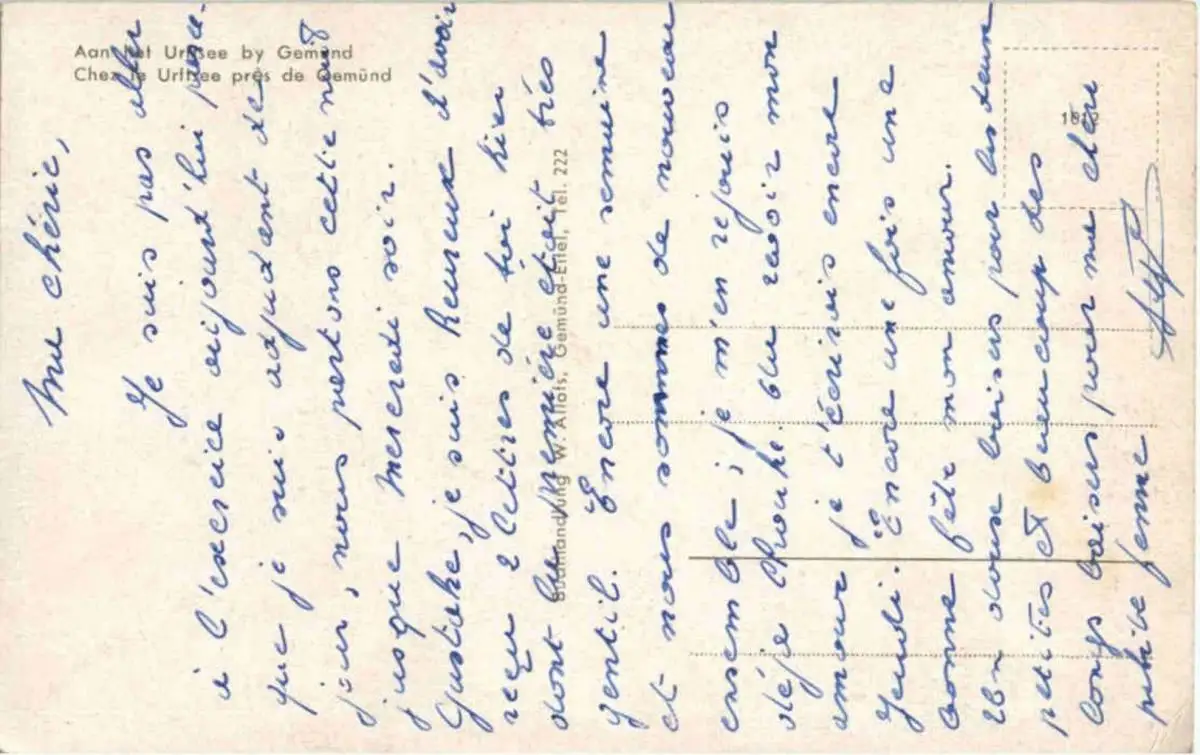 Aan het Urftsee by Gemünd
Chez le Urftsee près de Gemünd
1812
Buchhandlung W. Allois, Gemünd-Eifel, Tel. 222
Ma chérie,
Je suis pas aller
à l'exercice aujourd'hui parce-
que je suis adjudant de
jour, nous partons cette nuit
jusque Mercredi soir.
je suis heureux d'avoir
reçu 2 lettres de toi hier
dont la première était très
gentil. Encore une semaine
et nous sommes de nouveau
ensemble ; je m'en rejouis
déja Chouke bla revoir mon
amour je t'écrirais encore
Jeudi. Encore une fois une
bonne fête mon amour.
Un doux baiser pour les deux
petites et beaucoup des
longs baisers pour ma chère
petite femme